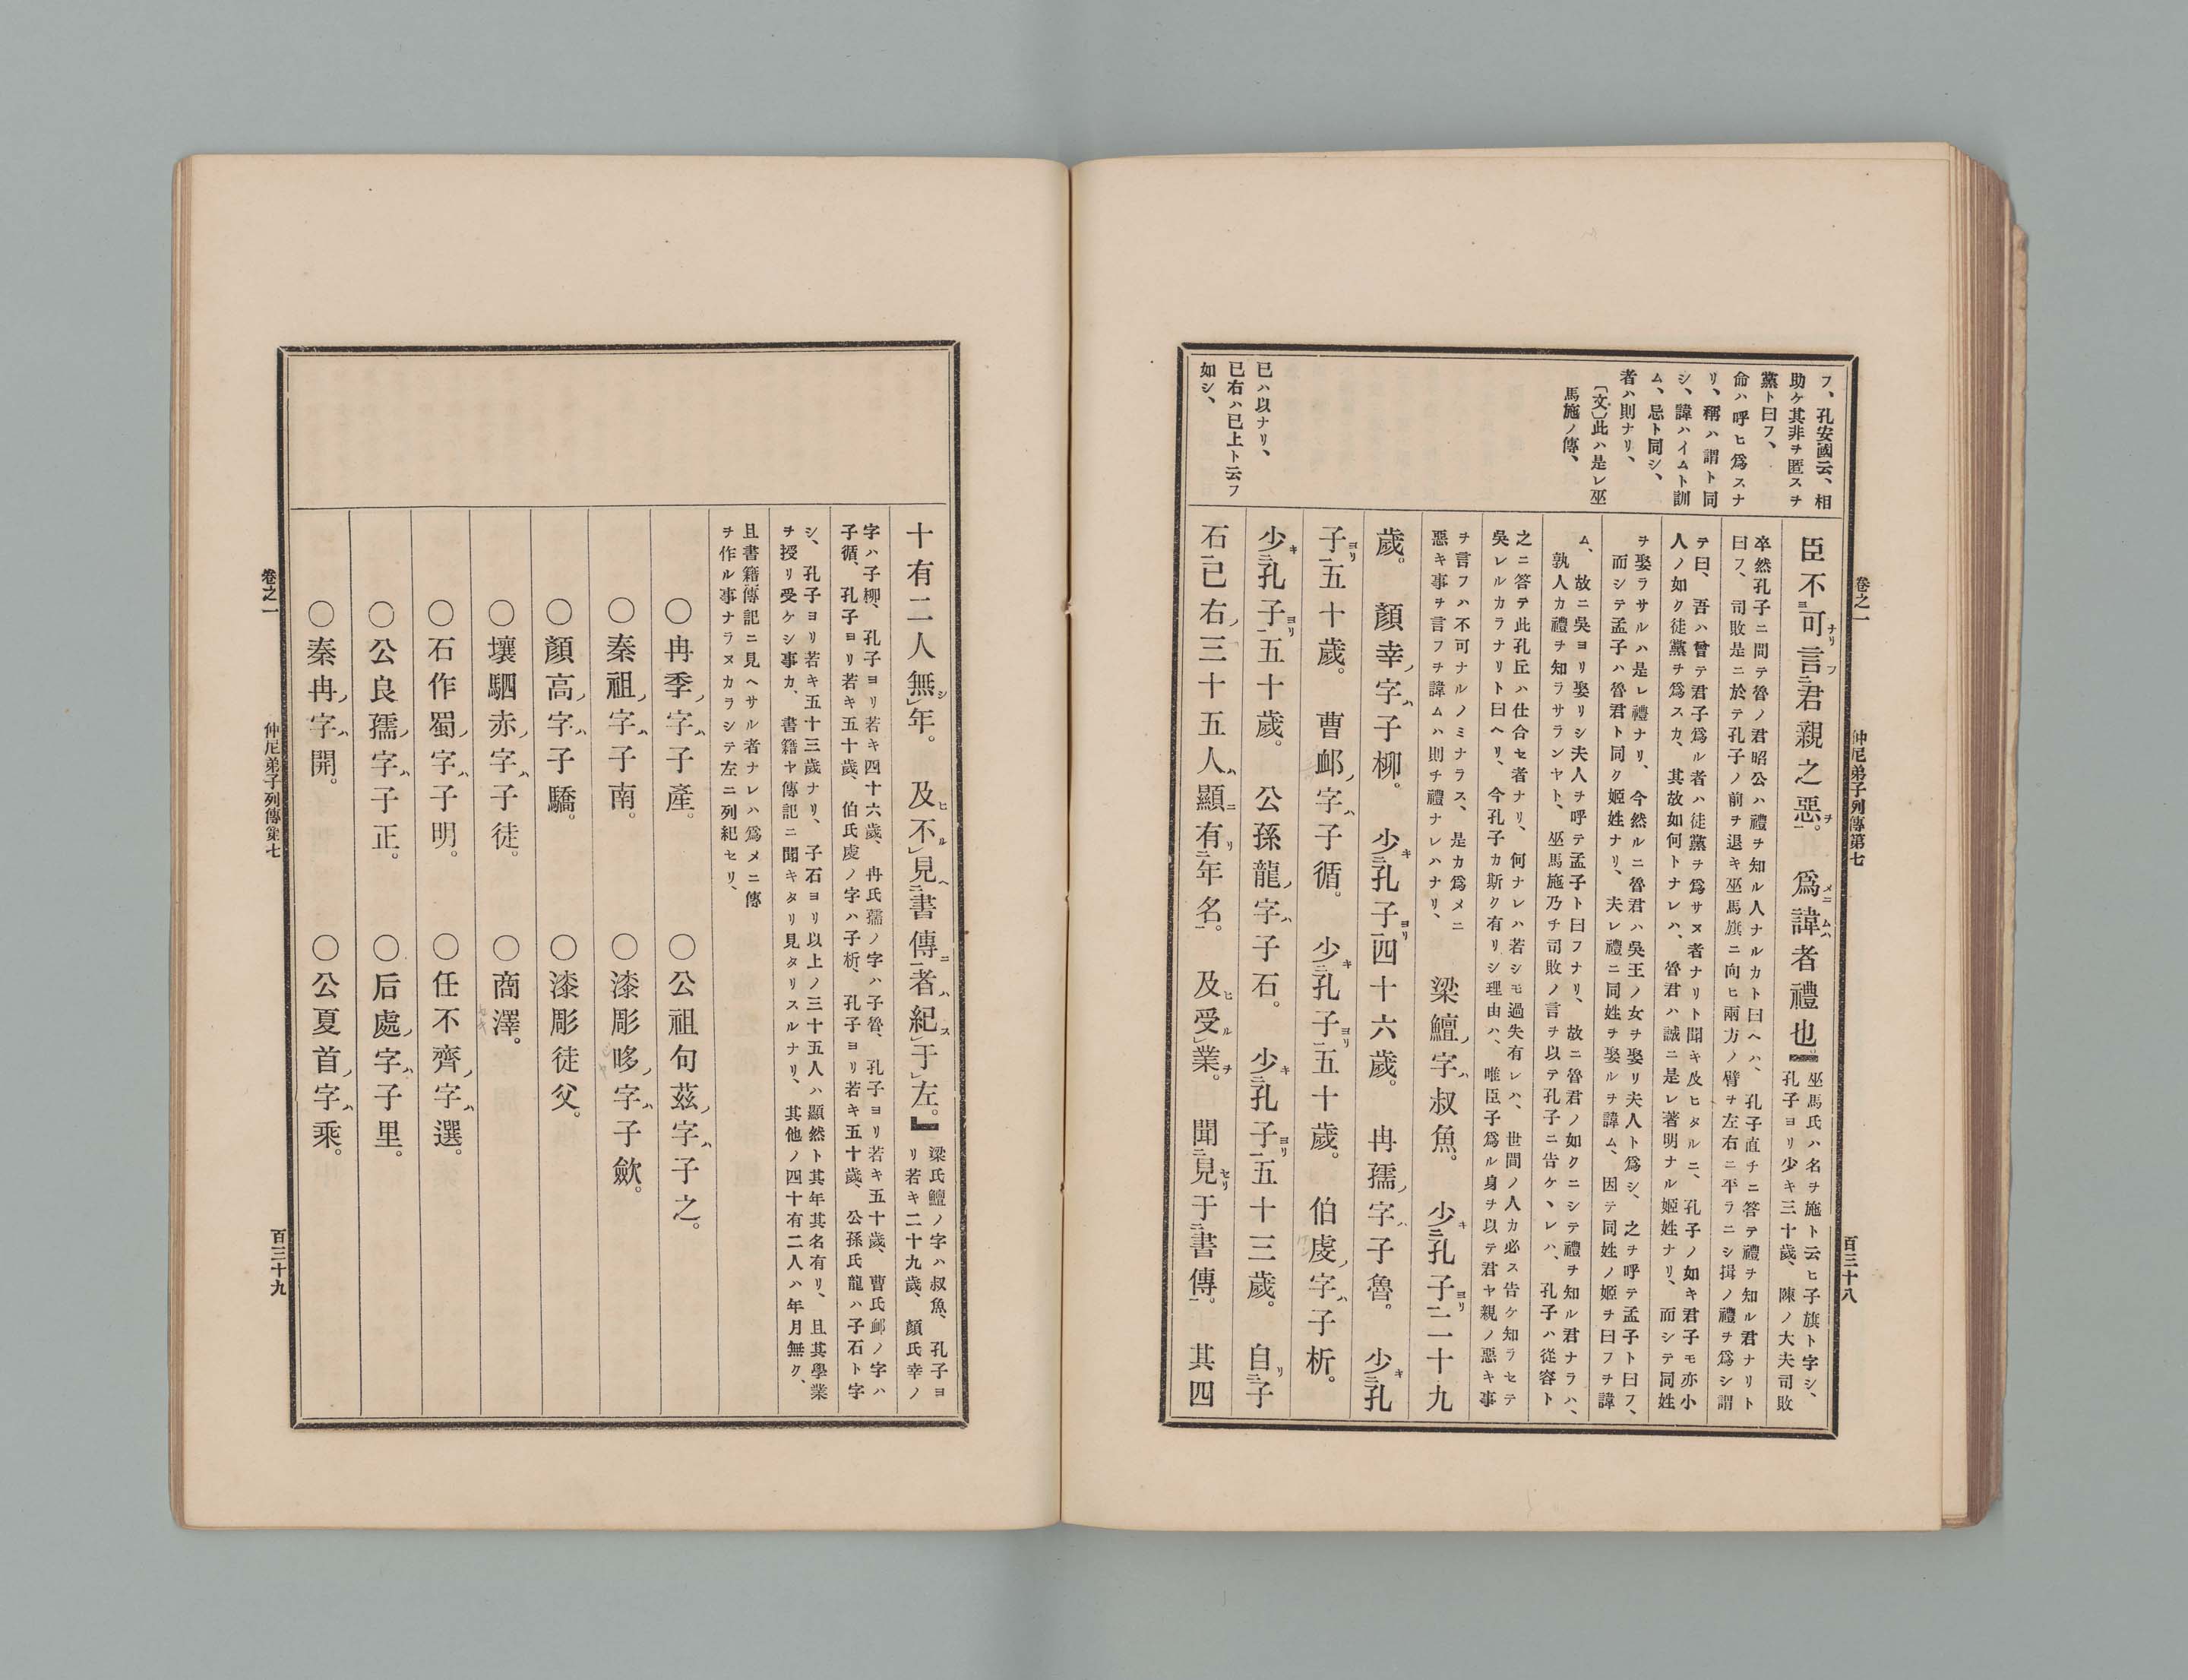 卷之一　仲尼弟子列傳第七　百三十八
フ、孔安國云、相
助ケ其非ヲ匿スヲ
黨ト曰フ、
命ハ呼ヒ爲スナ
リ、稱ハ謂ト同
シ、諱ハイムト訓
ム、忌ト同シ、
者ハ則ナリ、
〔文〕此ハ是レ巫
馬施ノ傳、
已ハ以ナリ、
已右ハ已上ト云フ
如シ、
臣不可言君親之惡。爲諱者禮也
巫馬氏ハ名ヲ施ト云ヒ子旗ト字シ、
孔子ヨリ少キ三十歲、陳ノ大夫司敗
卒然孔子ニ問テ魯ノ君昭公ハ禮ヲ知ル人ナルカト曰ヘハ、孔子直チニ答テ禮ヲ知ル君ナリト
曰フ、司敗是ニ於テ孔子ノ前ヲ退キ巫馬旗ニ向ヒ兩方ノ臂ヲ左右ニ平ラニシ揖ノ禮ヲ爲シ謂
テ曰、吾ハ曾テ君子爲ル者ハ徒黨ヲ爲サヌ者ナリト聞キ及ヒタルニ、孔子ノ如キ君子モ亦小
人ノ如ク徒黨ヲ爲スカ、其故如何トナレハ、魯君ハ誠ニ是レ著明ナル姬姓ナリ、而シテ同姓
ヲ娶ラサルハ是レ禮ナリ、今然ルニ魯君ハ吳王ノ女ヲ娶リ夫人ト爲シ、之ヲ呼テ孟子ト曰フ、
而シテ孟子ハ魯君ト同ク姬姓ナリ、夫レ禮ニ同姓ヲ娶ルヲ諱ム、因テ同姓ノ姬ヲ曰フヲ諱
ム、故ニ吳ヨリ娶リシ夫人ヲ呼テ孟子ト曰フナリ、故ニ魯君ノ如クニシテ禮ヲ知ル君ナラハ、
孰人カ禮ヲ知ラサランヤト、巫馬施乃チ司敗ノ言ヲ以テ孔子ニ告ケヽレハ、孔子ハ從容ト
之ニ答テ此孔丘ハ仕合セ者ナリ、何ナレハ若シモ過失有レハ、世間ノ人カ必ス告ケ知ラセテ
吳レルカラナリト曰ヘリ、今孔子カ斯ク有リシ理由ハ、唯臣子爲ル身ヲ以テ君ヤ親ノ惡キ事
ヲ言フハ不可ナルノミナラス、是カ爲メニ
惡キ事ヲ言フヲ諱ムハ則チ禮ナレハナリ、
梁鱣字叔魚。少孔子二十九
歲。顏幸字子柳。少孔子四十六歲。冉孺字子魯。少孔
子五十歲。曹卹字子循。少孔子五十歲。伯虔字子析。
少孔子五十歲。公孫龍字子石。少孔子五十三歲。自子
石已右三十五人顯有年名。及受業。聞見于書傳。其四
十有二人無年。及不見書傳者紀于左。
梁氏鱣ノ字ハ叔魚、孔子ヨ
リ若キ二十九歲、顏氏幸ノ
字ハ子柳、孔子ヨリ若キ四十六歲、冉氏孺ノ字ハ子魯、孔子ヨリ若キ五十歲、曹氏卹ノ字ハ
子循、孔子ヨリ若キ五十歲、伯氏虔ノ字ハ子析、孔子ヨリ若キ五十歲、公孫氏龍ハ子石ト字
シ、孔子ヨリ若キ五十三歲ナリ、子石ヨリ以上ノ三十五人ハ顯然ト其年其名有リ、且其學業
ヲ授リ受ケシ事カ、書籍ヤ傳記ニ聞キタリ見タリスルナリ、其他ノ四十有二人ハ年月無ク、
且書籍傳記ニ見ヘサル者ナレハ爲メニ傳
ヲ作ル事ナラヌカラシテ左ニ列紀セリ、
○冉季字子產。　○公祖句茲字子之。
○秦祖字子南。　○漆彫哆字子歛。
○顏高字子驕。　○漆彫徒父。
○壤駟赤字子徒。　○商澤。
○石作蜀字子明。　○任不齊字選。
○公良孺字子正。　○后處字子里。
○秦冉字開。　○公夏首字乘。
卷之一　仲尼弟子列傳第七　百三十九